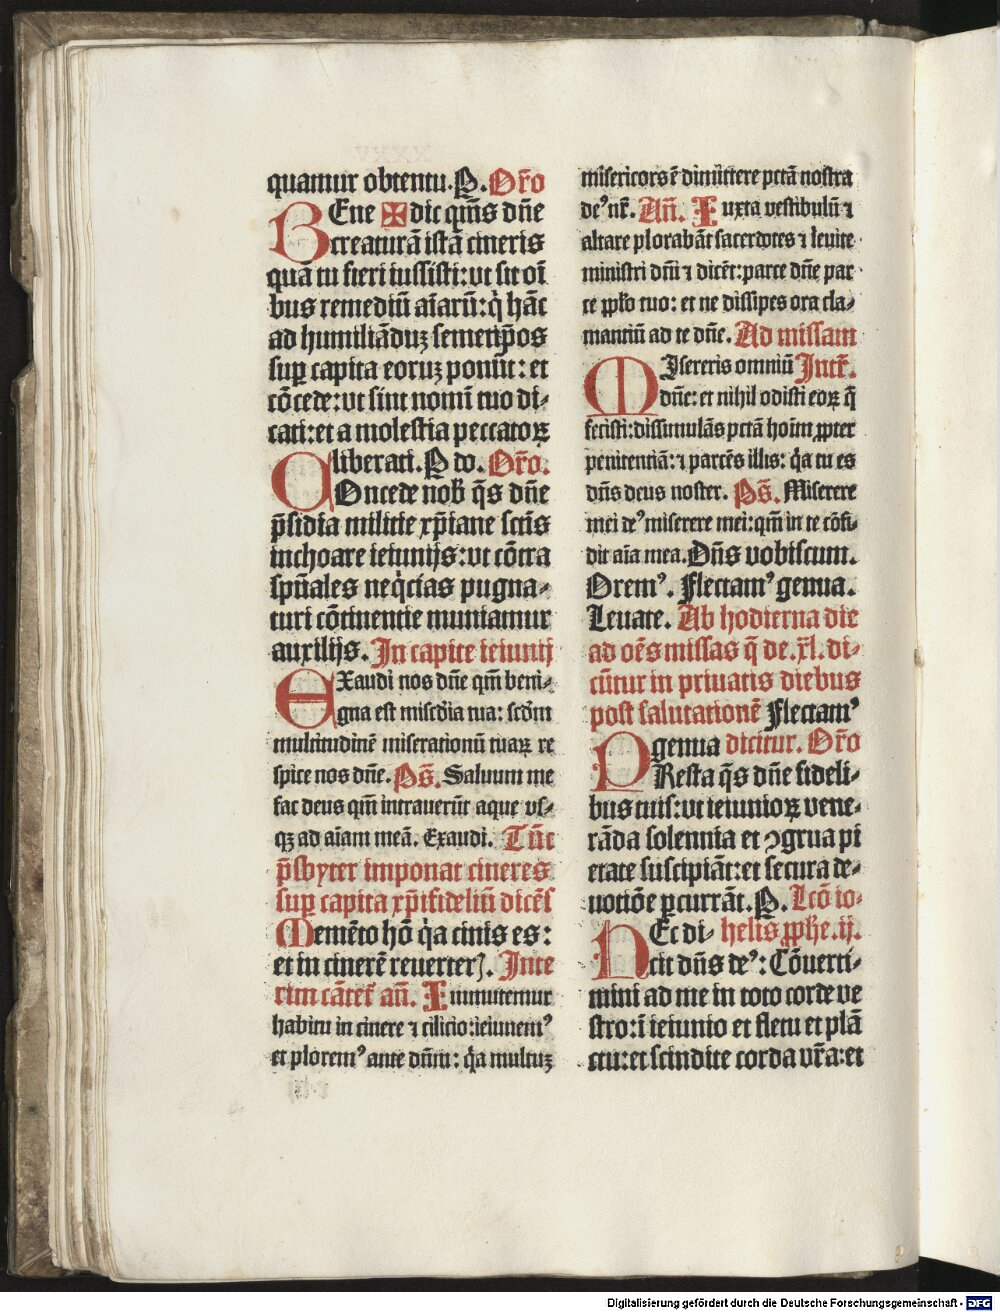 quamur obtentu. P. Or̄o
BEne ✠ dic qm̄s dn̄e
creaturā istā cineris
quā tu fieri iussisti: vt sit oī
bus remediū aīarū: q̇ hāc
ad humiliāduꝫ semetip̄os
suꝑ capita eoruꝫ ponūt: et
cōcede: vt sint nomī tuo di⸗
cati: et a molestia peccatoꝝ
liberati. P do. Or̄o.
COncede nob̄ q̄s dn̄e
p̄sidia militie xp̄iane sctīs
inchoare ieiunijs: vt cōtra
spūales neq̇cias pugna⸗
turi cōtinentie muniamur
auxilijs. In capite ieiunij
EXaudi nos dn̄e qm̄ beni⸗
gna est miscd̄ia tua: scdm̄
multitudinē miserationū tuaꝝ re
spice nos dn̄e. Ps̄. Saluum me
fac deus qm̄ intrauerūt aque vs⸗
qꝫ ad aīam meā. Exaudi. Tūc
p̄sbyter imponat cineres
suꝑ capita xp̄ifideliū dicēs
Memēto hō q̇a cinis es:
et in cinerē reuerterꝭ. Inte
rim cātet᷑ an̄. Immutemur
habitu in cinere ⁊ cilicio: ieiunemꝰ
et ploremꝰ ante dn̄m: q̇a multuꝫ
misericors ē dimittere pctā nostra
deꝰ nr̄. An̄. Iuxta vestibulū ⁊
altare plorabāt sacerdotes ⁊ leuite
ministri dn̄i ⁊ dicēt: parce dn̄e par
ce pp̄lo tuo: et ne dissipes ora cla⸗
mantiū ad te dn̄e. Ad missam
MIsereris omniū Intr̄.
dn̄e: et nihil odisti eoꝝ q̄
fecisti: dissimulās pctā hoīm ꝓpter
penitentiā: ⁊ parcēs illis: q̇a tu es
dn̄s deus noster. Ps̄. Miserere
mei deꝰ miserere mei: qm̄ in te cōfi⸗
dit aīa mea. Dn̄s vobiscum.
Oremꝰ. Flectamꝰ genua.
Leuate. Ab hodierna die
ad oēs missas q̄ de .xl. di⸗
cūtur in priuatis diebus
post salutationē Flectamꝰ
genua dicitur. Or̄o
PResta q̄s dn̄e fideli⸗
bus tuis: vt ieiunioꝝ vene⸗
rāda solennia et ꝯgrua pi
etate suscipiāt: et secura de⸗
uotiōe ꝑcurrāt. P. Lcō io⸗
HEc di⸗ helis ꝓphe. ij.
cit dn̄s deꝰ: Cōuerti⸗
mini ad me in toto corde ve
stro: ī ieiunio et fletu et plā
ctu: et scindite corda vr̄a: et
Digitalisierung gefördert durch die Deutsche Forschungsgemeinschaft - DFG